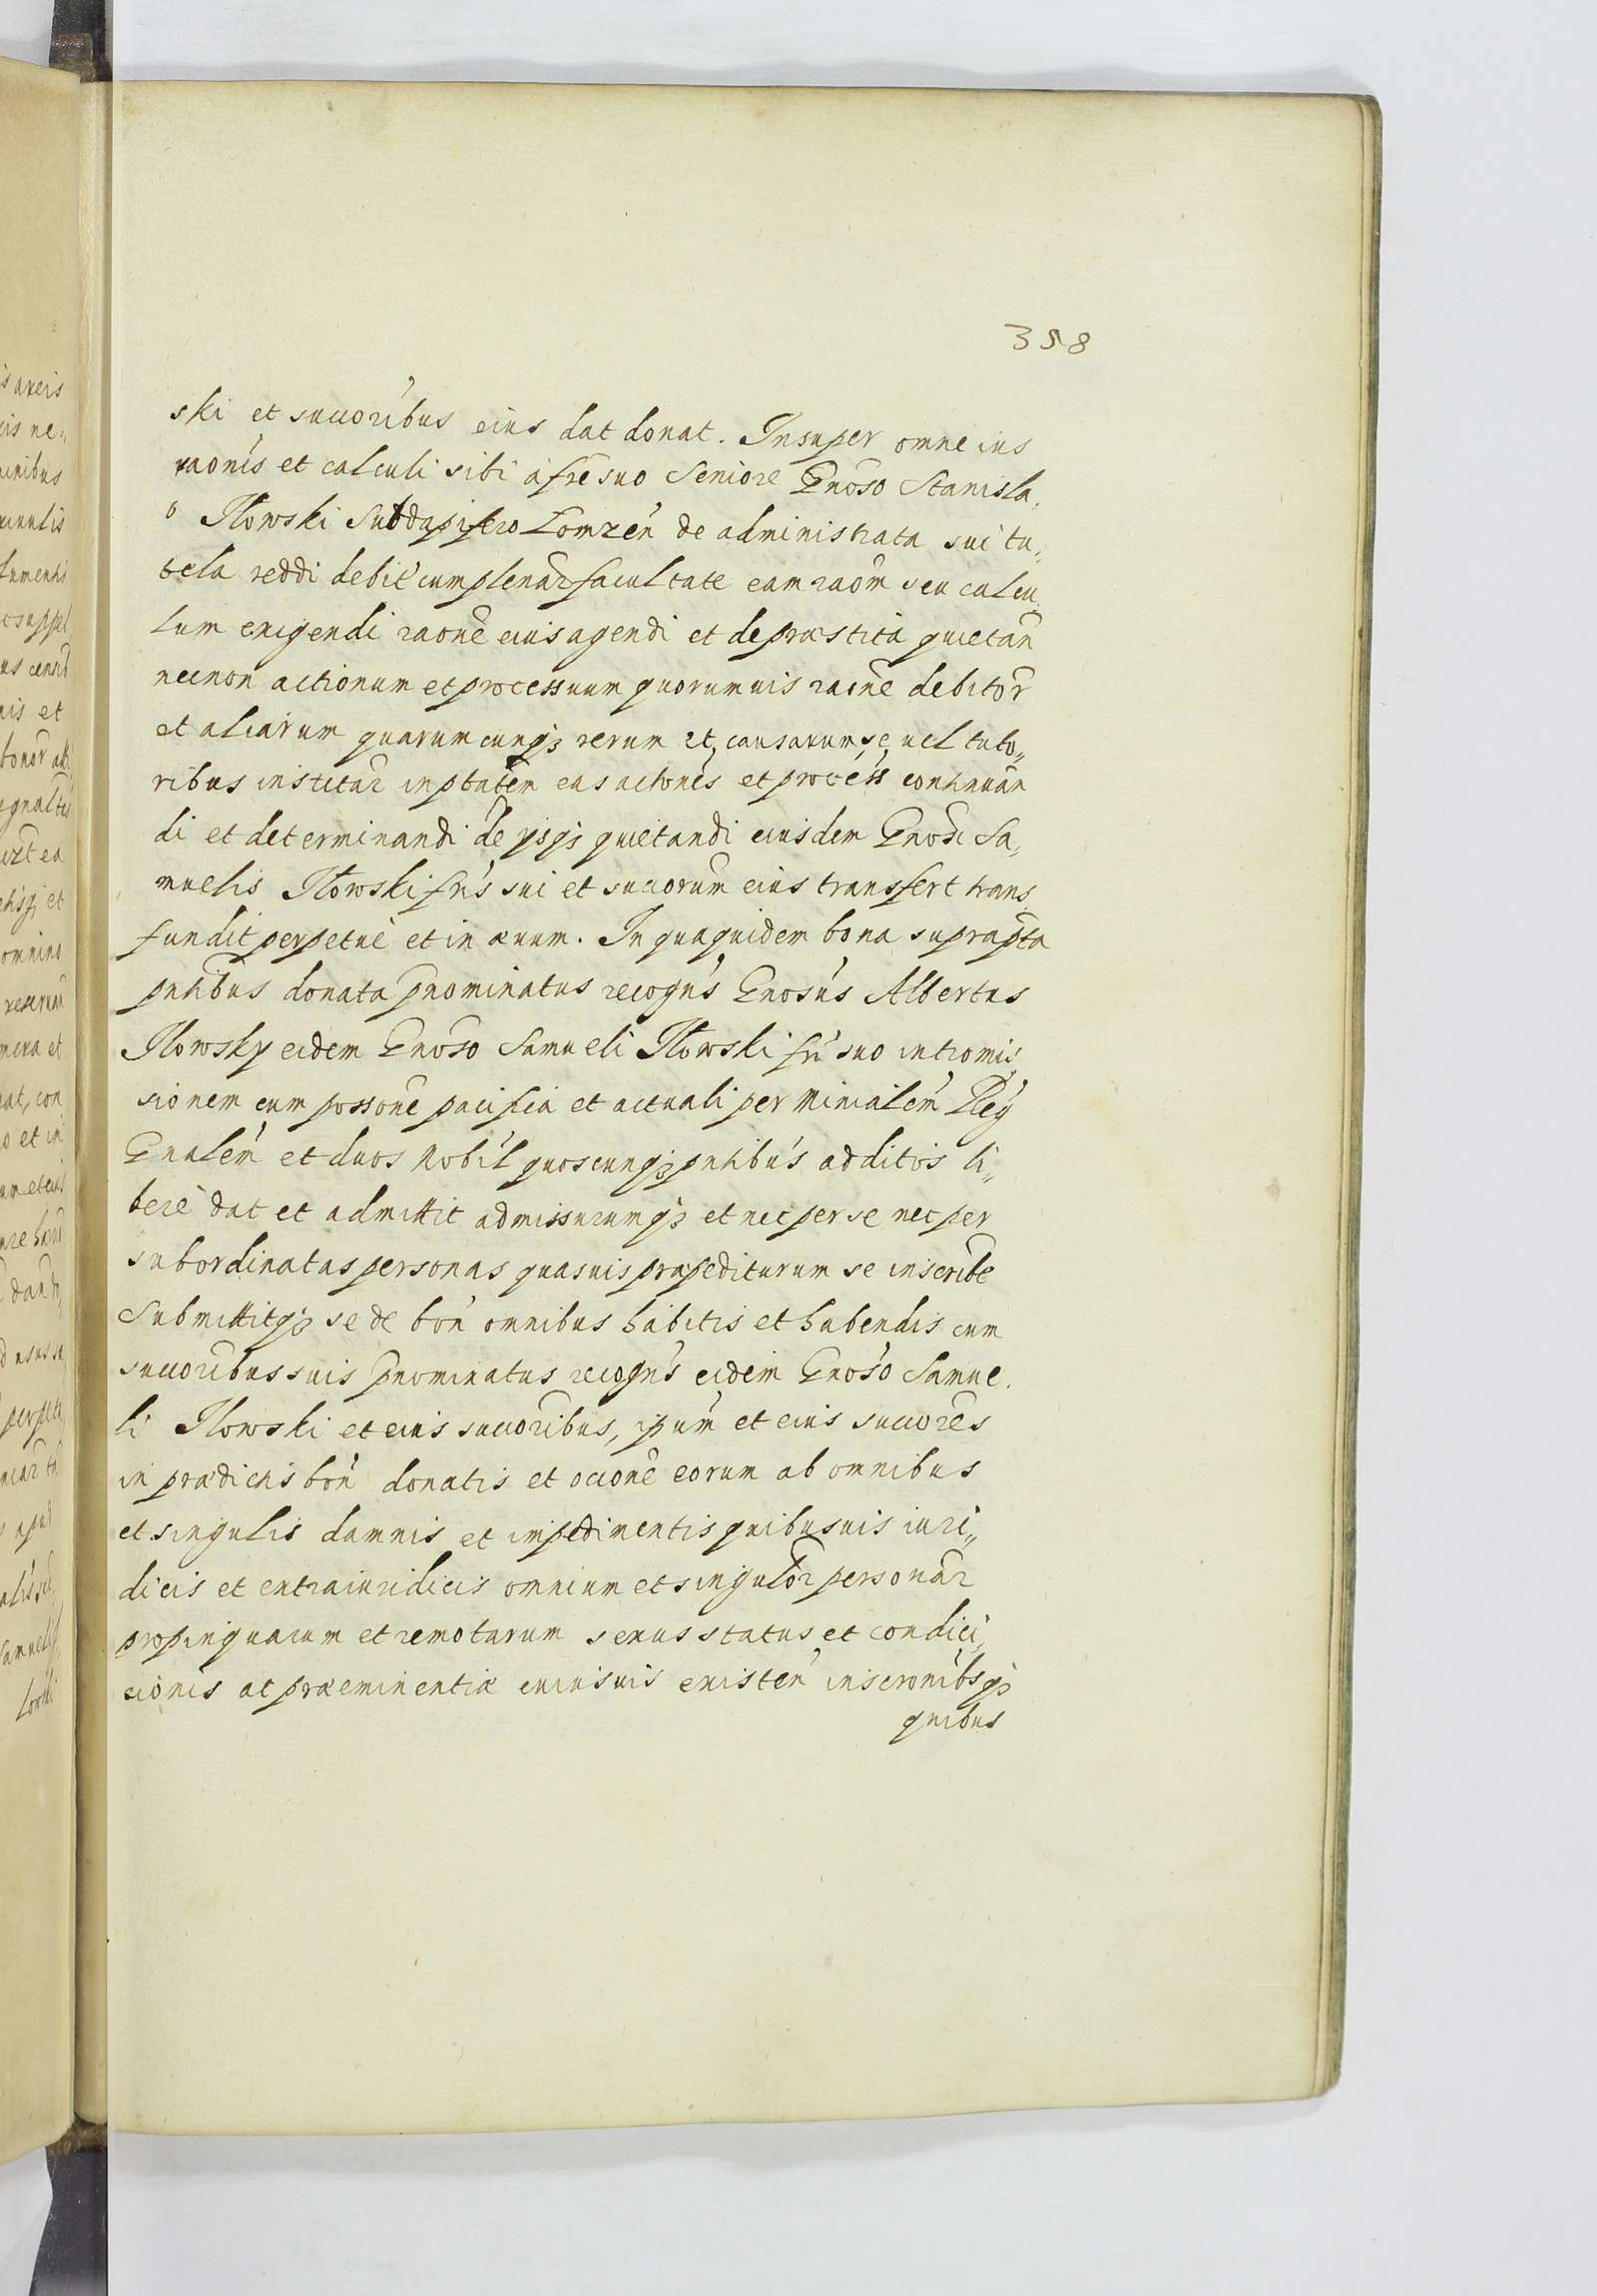 358
ski et succoribus eius dat donat. Insuper omne ius
raonis et calculi sibi a fre suo Seniore Gnoso Stanisla,
o Iłowski Subdapifero Łomzen de administrata sui tu,
tela reddi debit cum plenar facultate eam raom seu calcu
lum exigendi raone eius agendi et de præstita quietan
necnon actionum et processuum quorumuis raone debitor
et aliarum quarumcunqȝ rerum et causarum se uel tuto„
ribus institar in ptatem eas actiones et process continuan
di et determinandi de ipsqȝ quietandi eiusdem Gnosi Sa,
muelis Iłowski fris sui et succorum eius transfert trans
fundit perpetue et in æuum. In quaquidem bona suprapta
pntibus donata pnominatus recogns Gnosus Albertus
Iłowsky eidem Gnoso Samueli Iłowski fri suo intromis
sionem cum possone pacifica et actuali per Minialem Reg
Gnalem et duos Nobil quoscunqȝ pntibus additos li„
bere dat et admittit admissurumqȝ et nec per se nec per
subordinatas personas quasuis præpediturum se inscribe
Submittitqȝ se de bon omnibus habitis et habendis cum
succoribus suis pnominatus recogns eidem Gnoso Samue
li Iłowski et eius succoribus, ipum et eius succores
in prædictis bon donatis et ocione eorum ab omnibus
et singulis damnis et impedimentis quibusuis iuri„
dicis et extraiuridicis omnium et singulor personar
propinquarum et remotarum sexus status et condici,
cionis ac præeminentiæ cuiusuis existen inscronibsqȝ
quibus